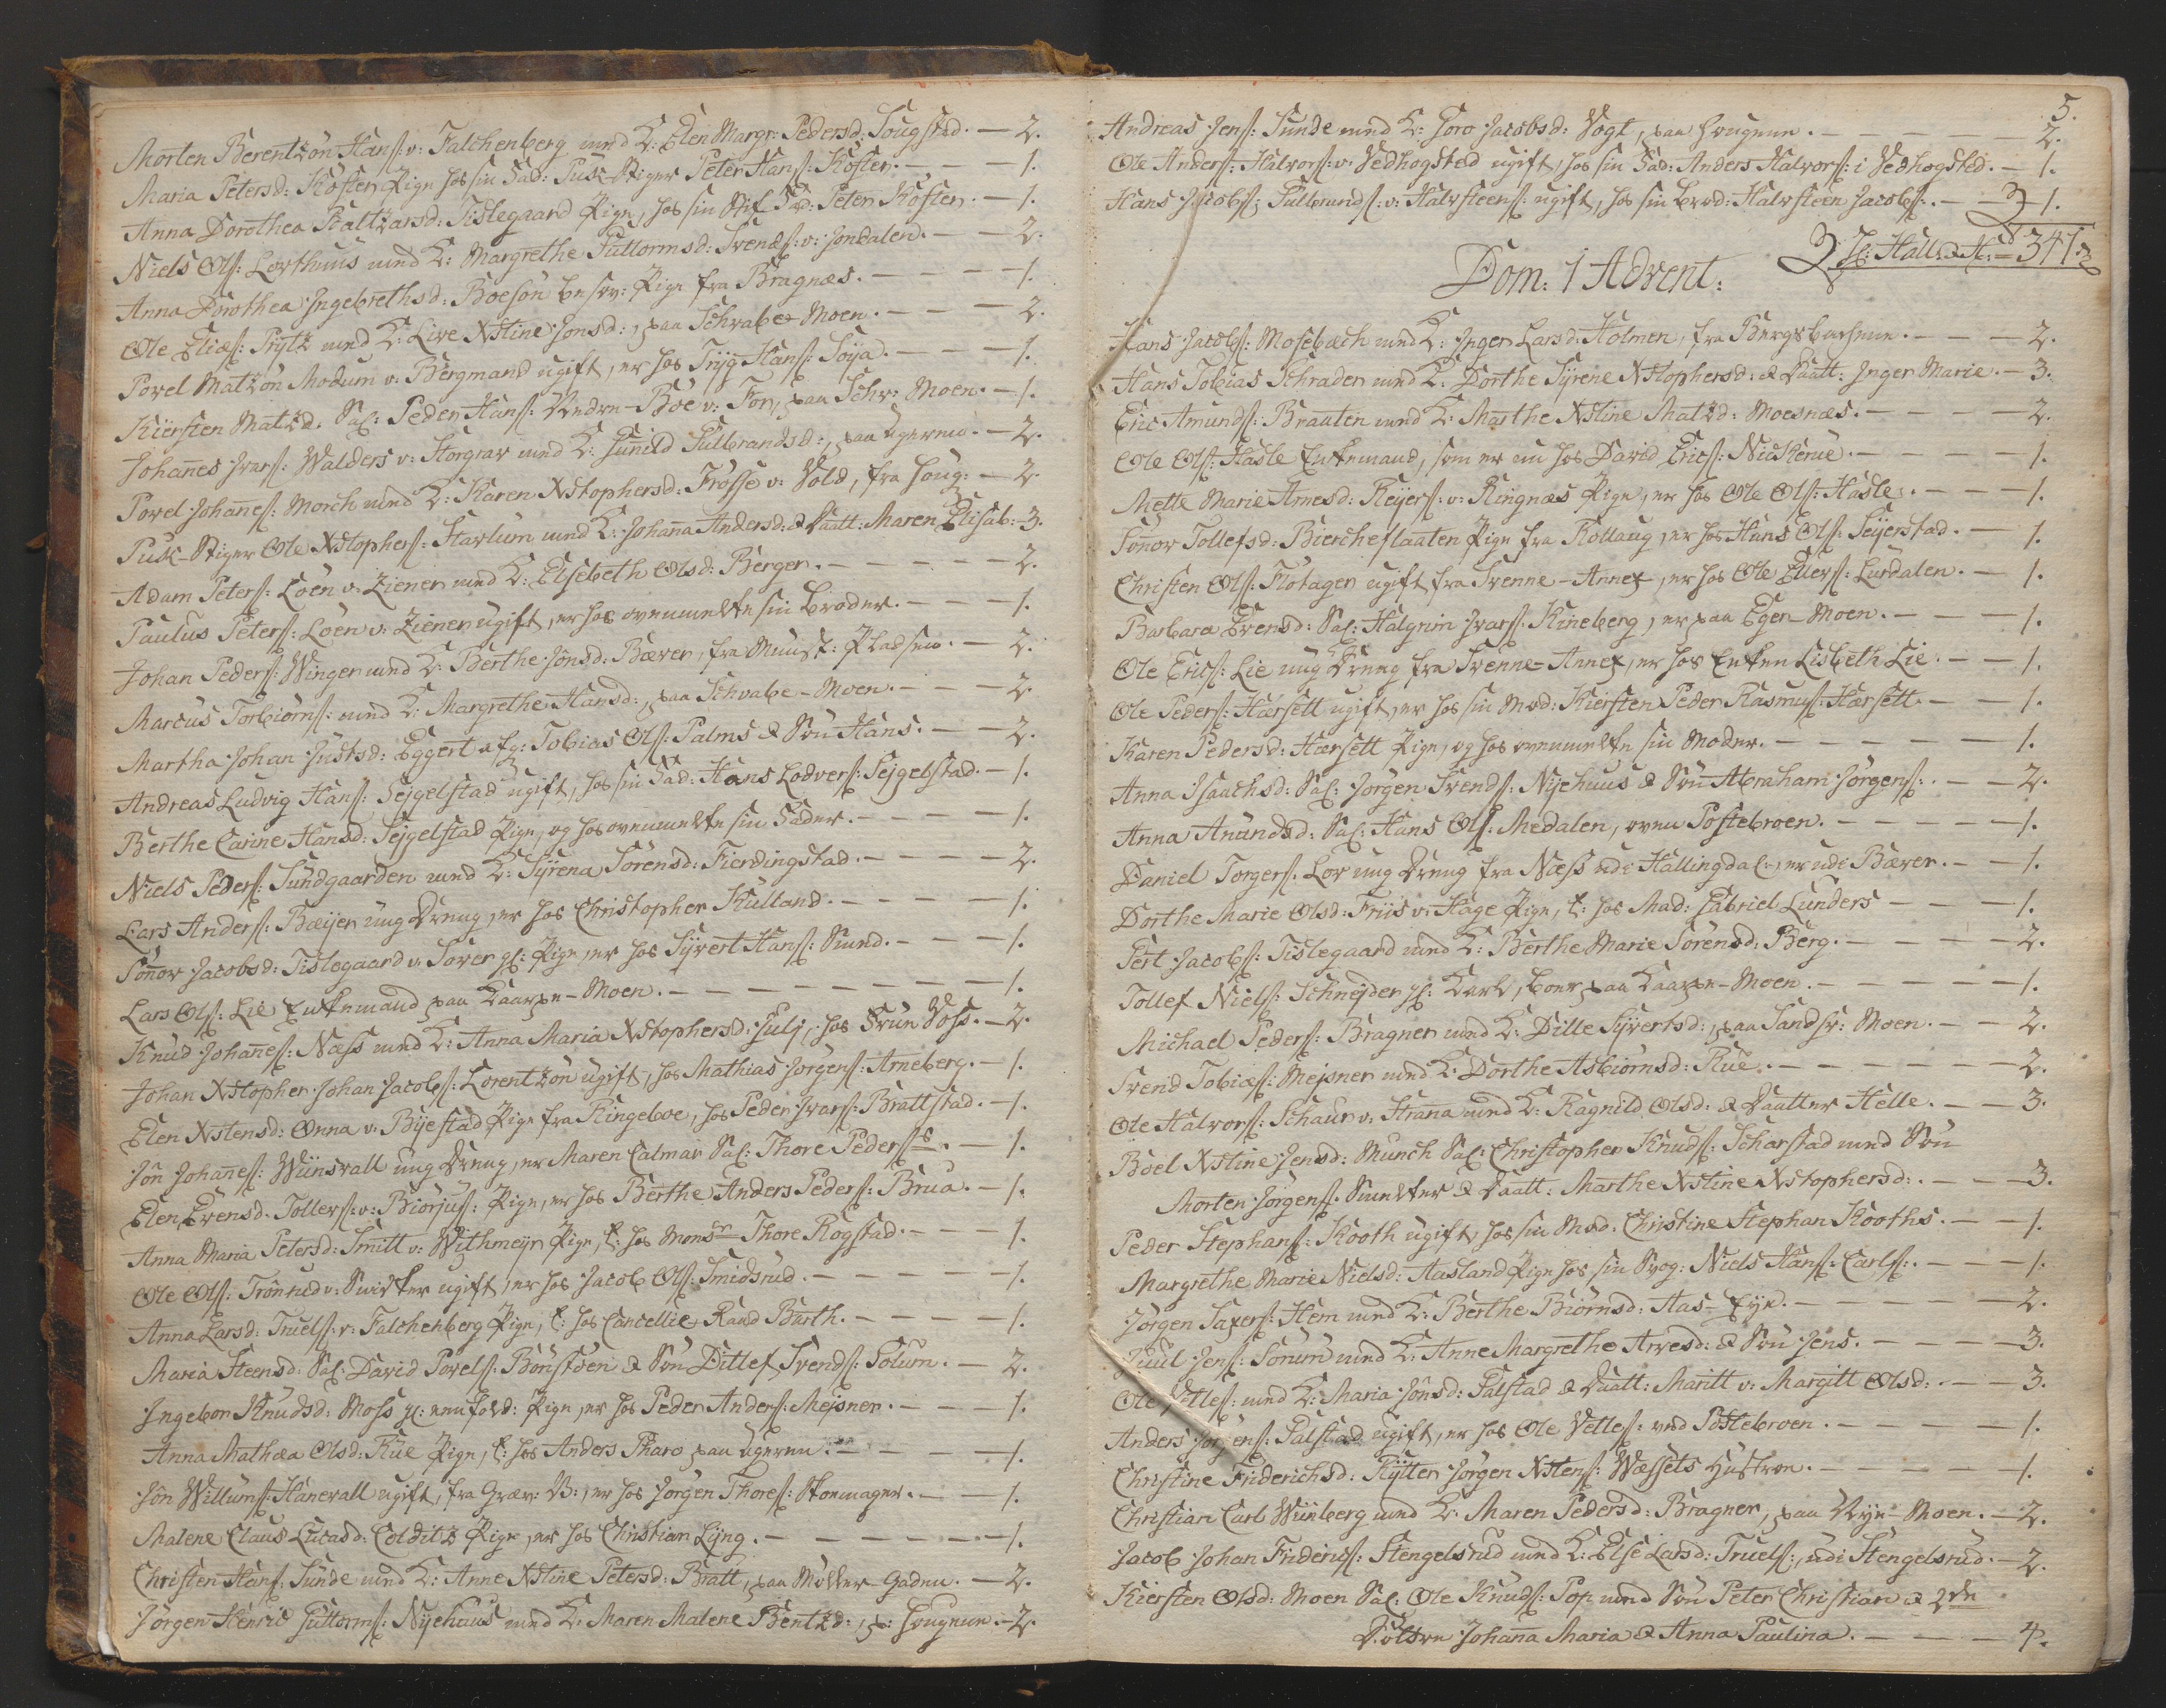 Morten Berentzön Hans: v: Falchenberg med K: Elen Margr: Pedersd: Sougstad. — 2.
Maria Petersd: Köster, Pige hos sin Fad: Puk-Stiger Peter Hans: Köster. — 1.
Anna Dorothea Baltzarsd: Tislegaard Pige, hos sin Stif Fad: Peter Köster. — 1.
Niels Ols: Lørthuus med K: Margrethe Guttormsd: Svends: v: Jondalen. — 2.
Anna Dorothea Ingebrethsd: Boesön besov: Pige fra Bragnæs. — 1.
Ole Elies: Prytz med K: Live Xstine Jonsd:, paa Schwabe-Moen. — 2.
Povel Matzön Modum v: Bergmand ugift, er hos Tryg Hans: Soya. — 1.
Kiersten Matzd. Sal: Peder Hans: Nedre-Böe v: For, paa Schv: Moen. — 1.
Johañes Ivars: Walders v: Storgrav med K: Guñild Gulbrandsd:, paa Ugerne. — 2.
Povel Johañes: Morch med K: Karen Xstophersd: Frösse v: Vold, fra Houg: — 2.
Puk-Stiger Ole Xstophers: Starlum med K: Johaña Andersd: & Daatt: Maren Elisab: — 3.
Adam Peters: Loen v: Ziener med K: Elsebeth Olsd: Berger. — 2.
Paulus Peters: Loen v: Ziener ugift, er hos ovenmelte sin Broder. — 1.
Johan Peders: Winger med K: Berthe Jönsd: Bæver, fra Munst: Pladsen. — 2.
Marcus Torbiörns: med K: Margrethe Hansd:, paa Schvabe-Moen. — 2.
Martha Johan Justsd: Eggert afg: Tobias Ols: Palms & Sön Hans. — 2.
Andreas Ludvig Hans: Sejgelstad ugift, hos sin Fad: Hans Lodvers: Sejgelstad. — 1.
Berthe Carine Hansd: Sejgelstad Pige, og hos ovenmelte sin Fader. — 1.
Niels Peders: Sundgaarden med K: Syrena Sörensd: Fierdingstad. — 2.
Lars Anders: Bæyer ung Dreng, er hos Christopher Kulland. — 1.
Göñor Jacobsd: Tislegaard v: Sorer gl: Pige, er hos Syvert Hans: Smed. — 1.
Lars Ols: Lie Enkemand paa Kaarpe-Moen. — 1.
Knud Johañes: Næss med K: Anna Maria Xstophersd: July, hos Frue Voss. — 2.
Johan Xstopher Johan Jacobs: Lorentzön ugift, hos Mathias Jörgens: Arneberg. — 1.
Elen Xstensd: Onna v: Byestad Pige fra Ringeboe, hos Peder Ivars: Brattstad. — 1.
Jön Johañes: Wiinsvall ung Dreng, er Maren Calmar Sal: Thore Peders:s. — 1.
Elen Evensd. Tollers: v: Biörjus: Pige, er hos Berthe Anders Peders: Brua. — 1.
Anna Maria Petersd: Smitt v: Withmeyr Pige, t: hos Monsr Thore Rogstad. — 1.
Ole Ols: Trönrud v: Snidker ugift, er hos Jacob Ols: Smidsrud. — 1.
Anna Larsd: Truels: v: Falchenberg Pige, t: hos Cancellie Raad Barth. — 1.
Maria Steensd: Sal: David Povels: Börstöen & Sön Ditlef Svends: Solum. — 2.
Ingebor Knudsd: Moss gl: Pige, er hos Peder Anders: Mejsner. — 1.
Anna Mathæa Olsd: Rue Pige, t: hos Anders Pharo paa Ugerne. — 1.
Jön Willums: Hanevall ugift, fra Græv: B:, er hos Jörgen Thores: Skomager. — 1.
Malene Claus Lucasd: Colditz Pige, er hos Christian Lyng. — 1.
Christen Hans: Sunde med K: Anne Xstine Petersd: Bratt, paa Möller-Gaden. — 2.
Jörgen Henric Guttorms: Nyehuus med K: Maren Malene Bentzd:, p: Hougene. — 2.
5.
Andreas Jens: Sunde med K: Goro Jacobsd: Vogt, paa Hougene. — 2.
Ole Anders: Halvors: v: Vedhogsted ugift, hos sin Fad: Anders Halvors: i Vedhogsted. — 1.
Hans Jacobs: Gulbrands: v: Halvsteens: ugift, hos sin Brod: Halvsteen Jacobs: — 1.
341
Dom: 1 Advent:
Hans Jacobs: Mosebach med K: Inger Larsd: Holmen, fra Bergsbachene. — 2.
Hans Tobias Schrader med K: Dorthe Syrene Xstophersd: & Daatt: Inger Marie. — 3.
Eric Amunds: Braaten med K: Marthe Xstine Matzd: Moesnæs. — 2.
Ole Ols: Hasle Enkemand, som er nu hos David Erics: Nickerue. — 1.
Mette Marie Arnesd: Reyers: v: Ringnæs Pige, er hos Ole Ols: Hasle. — 1.
Göñor Tollefsd: Biercheflaaten Pige fra Rollaug, er hos Hans Ols: Sejerstad. — 1.
Christen Ols: Flötager ugift fra Svenne-Annex, er hos Ole Ellers: Lurdalen. — 1.
Barbara Evensd: Sal: Halgrim Ivars: Kineberg, er paa Eger-Moen. — 1.
Ole Erics: Lie ung Dreng fra Svenne-Annex, er hos Enken Lisbeth Lie. — 1.
Ole Peders: Hærsett ugift, er hos sin Mod: Kiersten Peder Rasmus: Hærsett. — 1.
Karen Pedersd: Hærsett Pige, og hos ovenmelte sin Moder. — 1.
Anna Isaachsd: Sal: Jörgen Svends: Nyehuus & Sön Abraham Jörgens: — 2.
Anna Anundsd: Sal: Hans Ols: Medalen, oven Postebroen. — 1.
Daniel Torgers: Lov ung Dreng fra Næss udi Hallingdal, er udi Bæver. — 1.
Dorthe Marie Olsd: Friis v: Hage Pige, t: hos Mad: Gabriel Lunders — 1.
Pert Jacobs: Tislegaard med K: Berthe Marie Sörensd: Berg. — 2.
Tollef Niels: Schnejder gl: Karl, boer paa Kaarpe-Moen. — 1.
Michael Peders: Bragner med K: Dille Syvertsd:, paa Sands: Moen. — 2.
Svend Tobias: Mejsner med K: Dorthe Asbiörnsd: Rue. — 2.
Ole Halvors: Schaur v: Straña med K: Ragnild Olsd: & Daatter Helle. — 3.
Boel Xstine Jensd: Munch Sal: Christopher Knuds: Scharstad med Sön
Morten Jörgens: Smelter & Daatt: Marthe Xstine Xstophersd: — 3.
Peder Stephans: Kooth ugift, hos sin Mod. Christine Stephan Kooths. — 1.
Margrethe Marie Nielsd: Aasland Pige hos sin Svog: Niels Hans: Carls: — 1.
Jörgen Saxers: Hem med K: Berthe Biörnsd: Aas-Eye. — 2.
Juul Jens: Sorum med K: Anne Margrethe Arvesd: & Sön Jens. — 3.
Ole Vetles: med K: Maria Jönsd: Falstad & Daatt: Maritt v: Margitt Olsd: — 3.
Anders Jörgens: Falstad ugift, er hos Ole Vetles: ved Postebroen. — 1.
Christine Friderichsd: Rytter Jörgen Xstens: Wæssets Hustroe. — 1.
Christian Carl Wiinberg med K: Maren Pedersd: Bragner, paa Nye-Moen. — 2.
Jacob Johan Friderics: Stengelsrud med K: Else Larsd: Truels:, udi Stengelsrud. — 2.
Kiersten Olsd: Moen Sal: Ole Knuds: Pop med Sön Peter Christian & 2de
Döttre Johaña Maria & Anna Paulina. — 4.